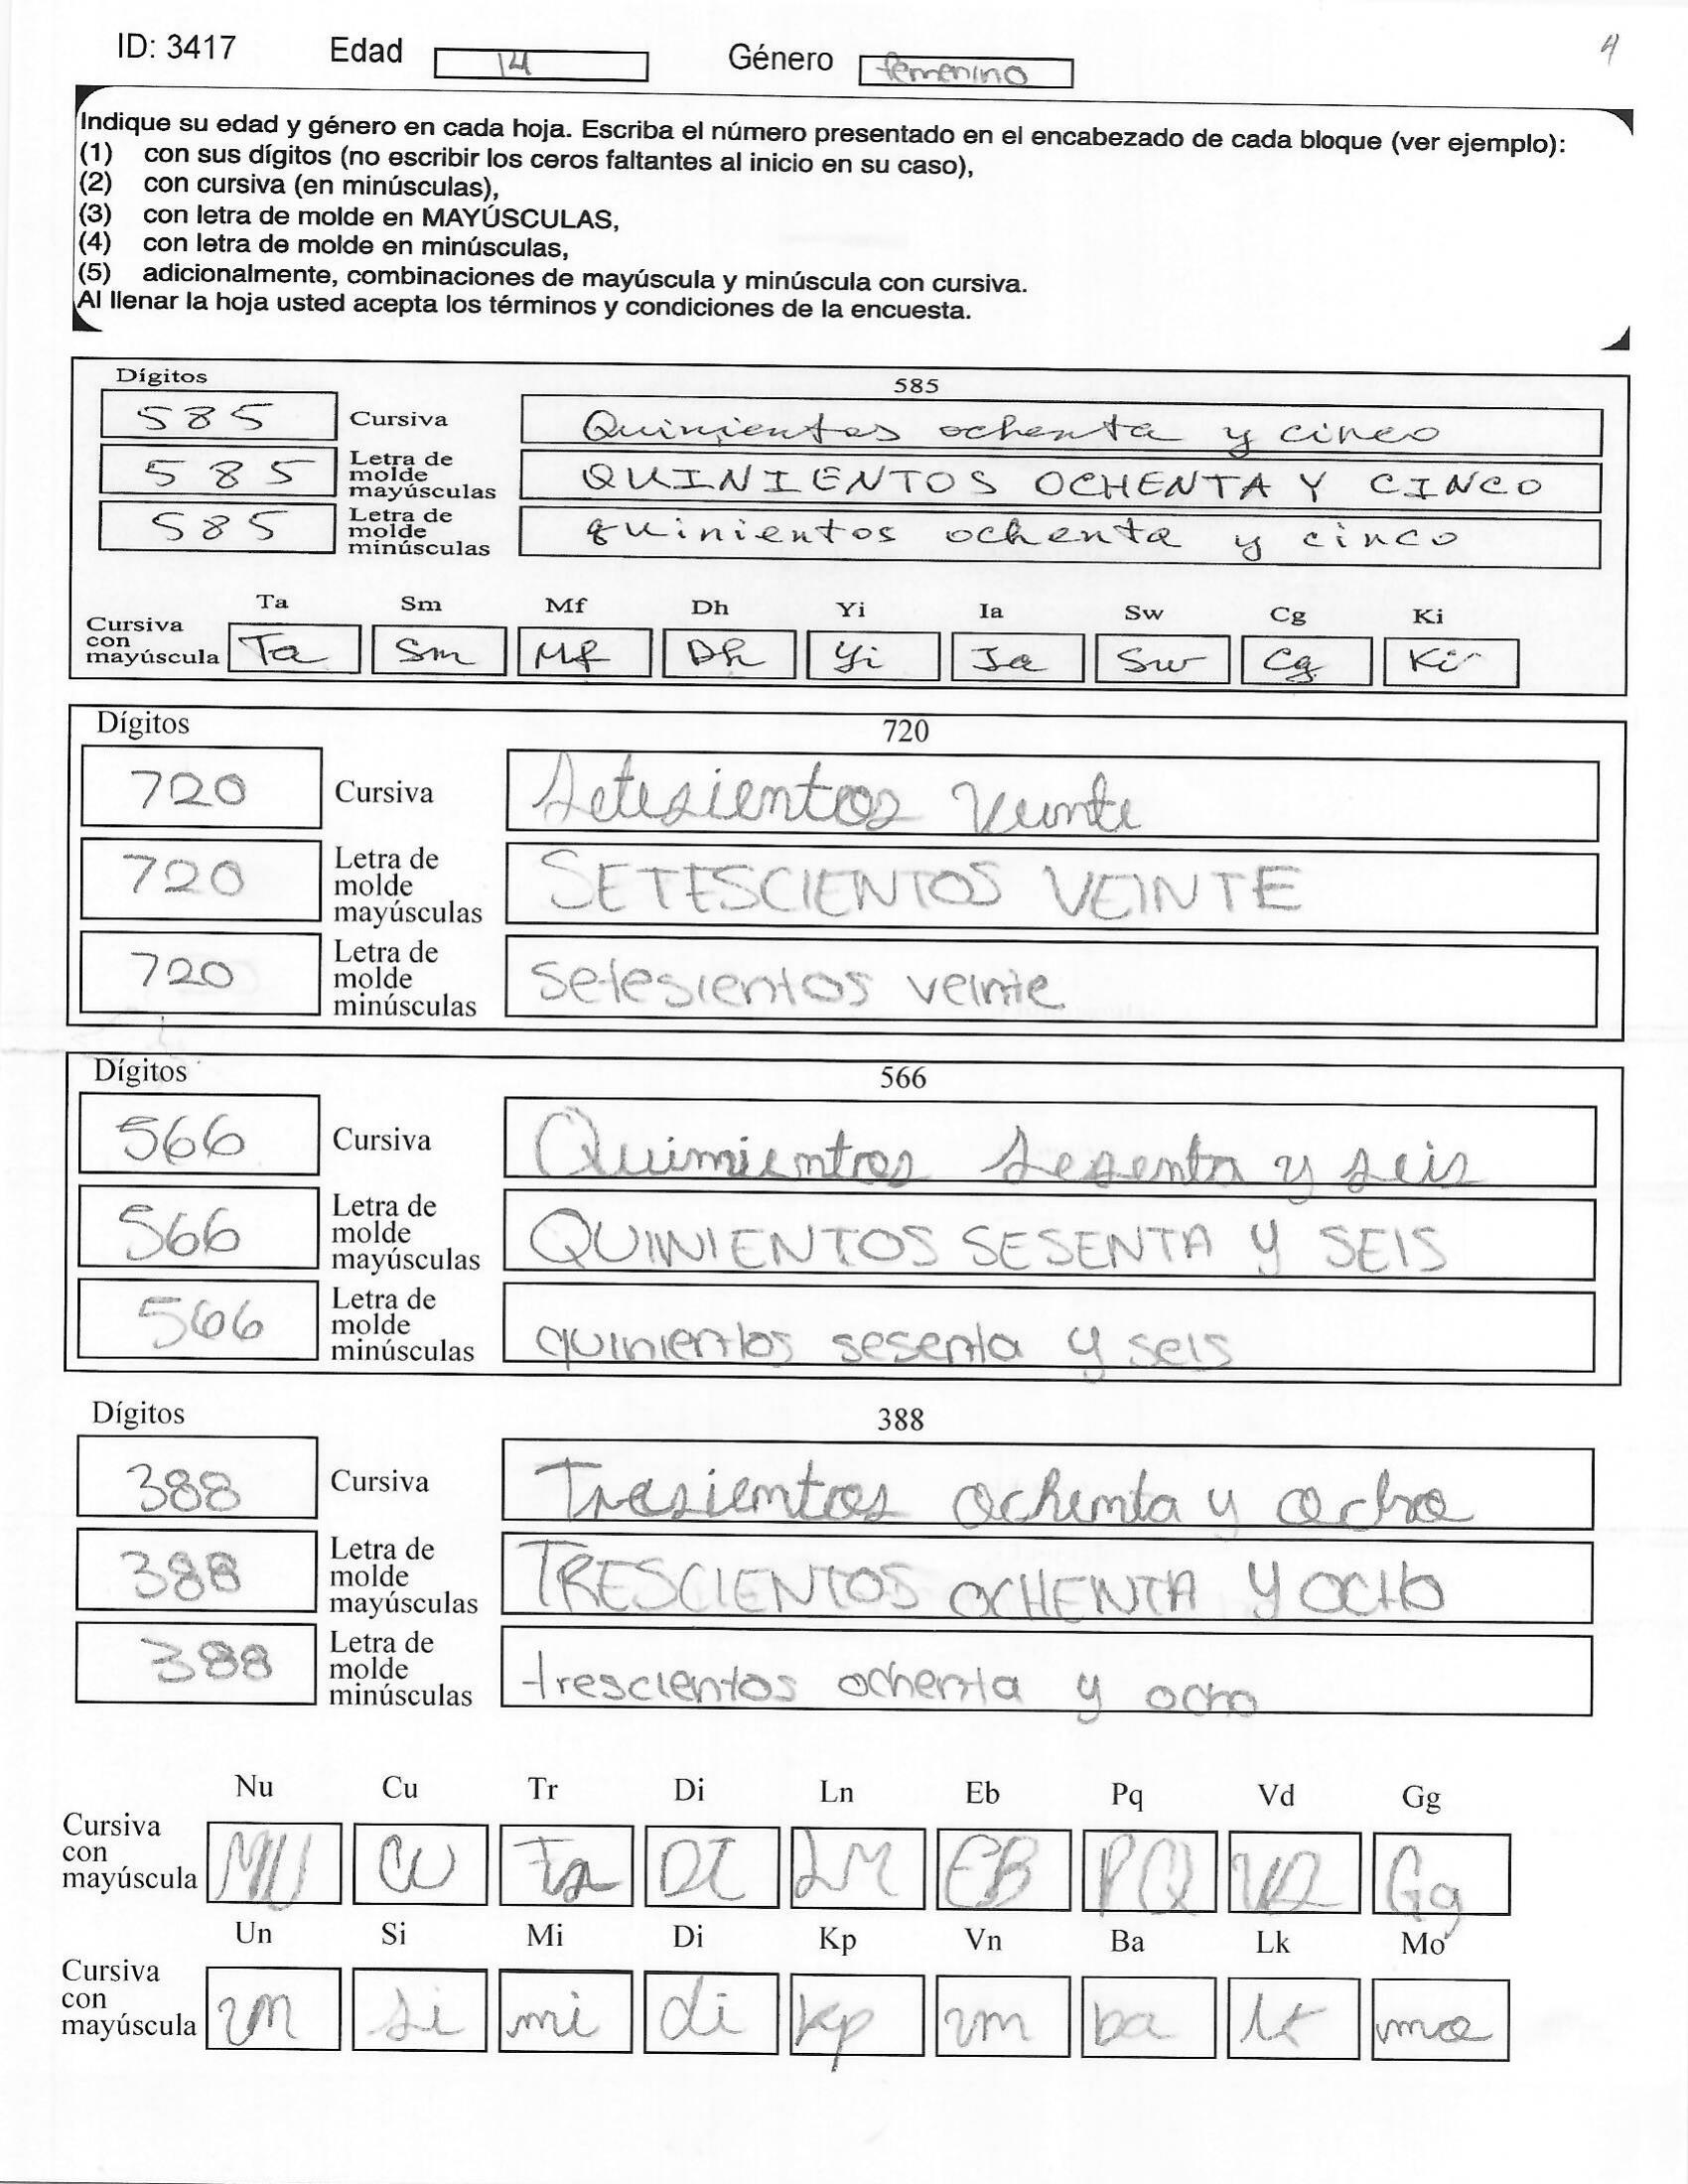 ID: 3417 Edad 14 Género femenino 4
Indique su edad y género en cada hoja. Escriba el número presentado en el encabezado de cada bloque (ver ejemplo):
(1) con sus dígitos (no escribir los ceros faltantes al inicio en su caso),
(2) con cursiva (en minúsculas),
(3) con letra de molde en MAYÚSCULAS,
(4) con letra de molde en minúsculas,
(5) adicionalmente, combinaciones de mayúscula y minúscula con cursiva.
Al llenar la hoja usted acepta los términos y condiciones de la encuesta.
Dígitos 585
585 Cursiva Quinientos ochenta y cinco
585 Letra de molde mayúsculas QUINIENTOS OCHENTA Y CINCO
585 Letra de molde minúsculas quinientos ochenta y cinco
Ta Sm Mf Dh Yi Ia Sw Cg Ki
Cursiva con mayúscula Ta Sm Mf Dh Yi Ia Sw Cg Ki
Dígitos 720
720 Cursiva Setesientos Veinte
720 Letra de molde mayúsculas SETESCIENTOS VEINTE
720 Letra de molde minúsculas setesientos veinte
Dígitos 566
566 Cursiva Quinientos Sesenta y seis
566 Letra de molde mayúsculas QUINIENTOS SESENTA Y SEIS
566 Letra de molde minúsculas quinientos sesenta y seis
Dígitos 388
388 Cursiva Tresientos ochenta y ocho
388 Letra de molde mayúsculas TRESCIENTOS OCHENTA Y OCHO
388 Letra de molde minúsculas trescientos ochenta y ocho
Nu Cu Tr Di Ln Eb Pq Vd Gg
Cursiva con mayúscula NU CU Tr DI LN EB PQ VD Gg
Un Si Mi Di Kp Vn Ba Lk Mo
Cursiva con mayúscula un si mi di kp vn ba lk mo